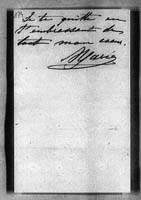 Je te quitte en
t'embrassant de
tout mon cœur.
Marie